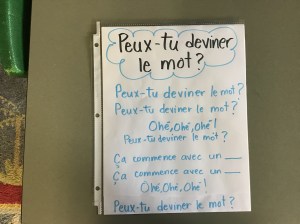 Peux-tu deviner
le mot?
Peux-tu deviner le mot?
Peux-tu deviner le mot?
Ohé, Ohé, Ohé!
Peux-tu deviner le mot?
Ça commence avec un ___
Ça commence avec un ___
Ohé, Ohé, Ohé!
Peux-tu deviner le mot?